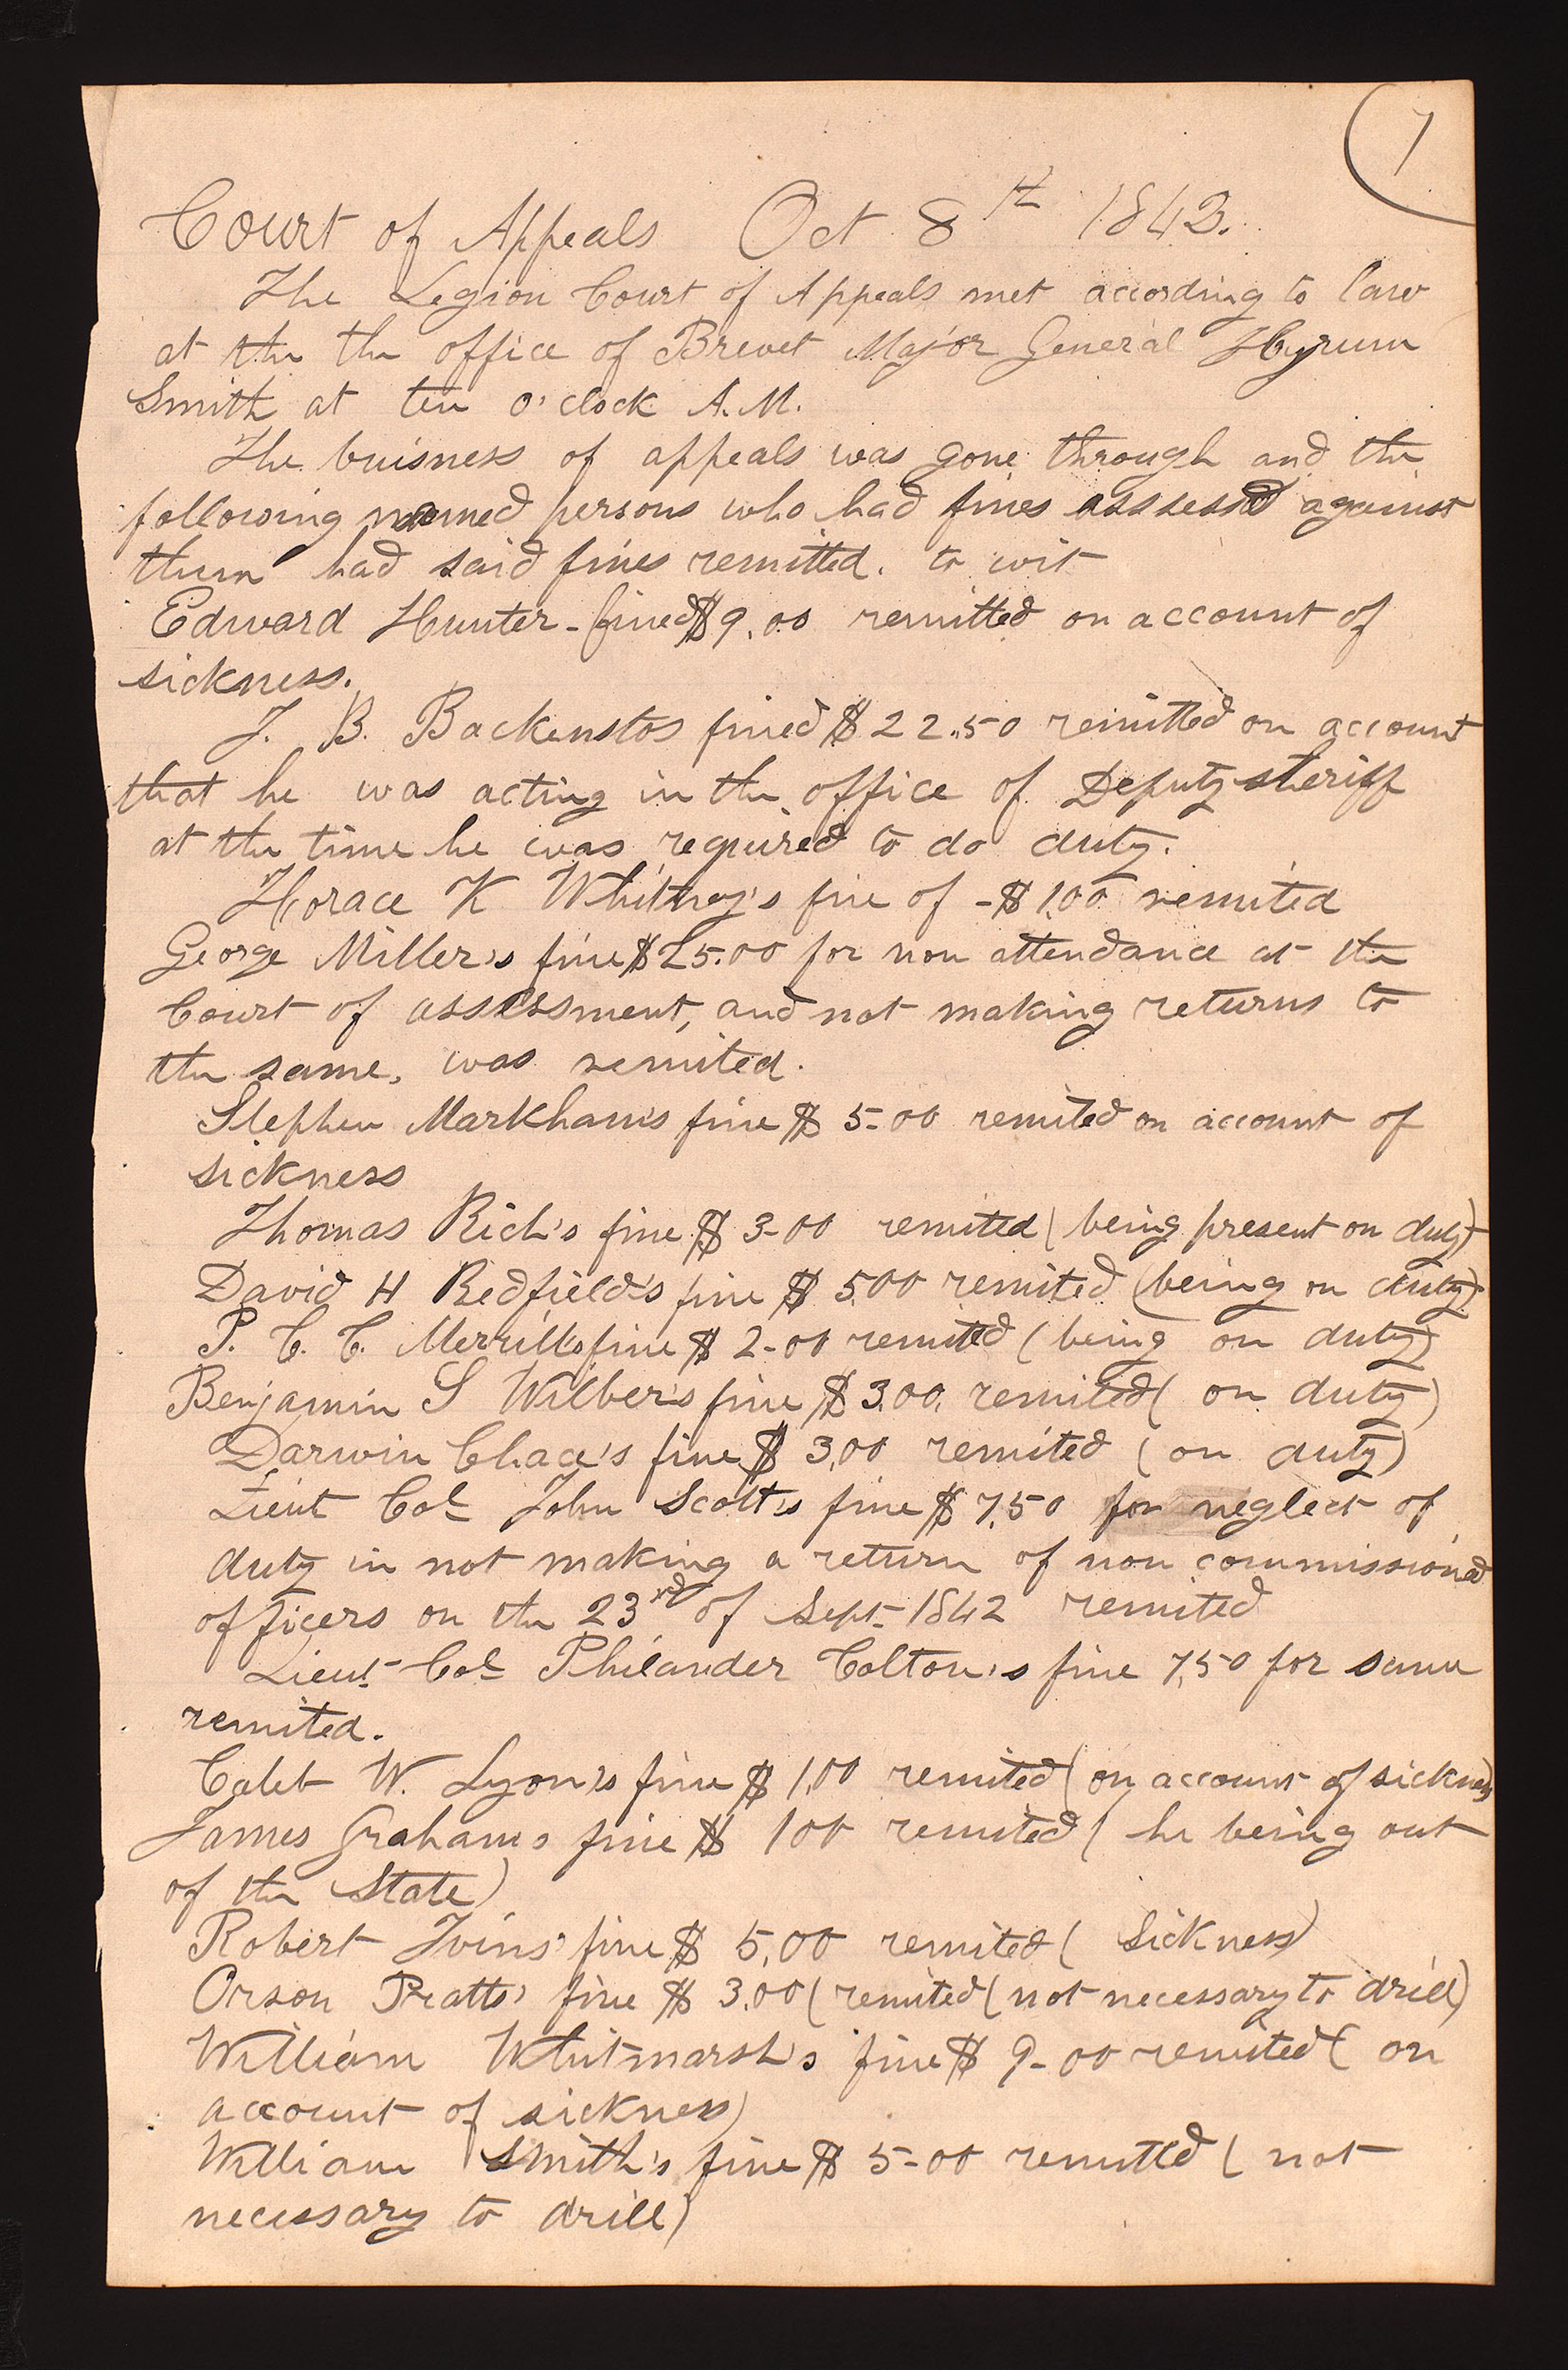 7
Court of Appeals Oct 8th 1843.
The Legion Court of Appeals met according to law
at the the office of Brevet Major General Hyrum
Smith at ten o'clock A.M.
The buisness of appeals was gone through and the
following named persons who had fines assessed against
them had said fines remitted. to wit
Edward Hunter - fined $9.00 remitted on account of
sickness.
J. B. Backenstos fined $22.50 remitted on account
that he was acting in the office of Deputy sheriff
at the time he was required to do duty.
Horace K Whitney's fine of - $1.00 remited
George Miller's fine $25.00 for non attendance at the
Court of assessment, and not making returns to
the same, was remited.
Stephen Markham's fine $5-00 remited on account of
sickness
Thomas Rich's fine $3-00 remited (being present on duty)
David H Redfield's fine $5.00 remited (being on duty)
P. C. C. Merrill's fine $2-00 remited (being on duty)
Benjamin S Wilber's fine $3.00. remited (on duty)
Darwin Chace's fine $3.00 remited (on duty)
Lieut Col John Scott's fine $7.50 for neglect of
duty in not making a return of non commissioned
officers on the 23rd of Sept 1842 remited
Lieut Col Philander Colton's fine 7.50 for same
remited.
Caleb W. Lyon's fine $1.00 remited (on account of sickness)
James Graham's fine $100 remited (he being out
of the State)
Robert Ivins' fine $5.00 remited (sickness)
Orson Pratts' fine $3.00 (remited (not necessary to drill)
William Whitmarsh's fine $9-00 remited (on
account of sickness)
William Smith's fine $5-00 remitted (not
necessary to drill)